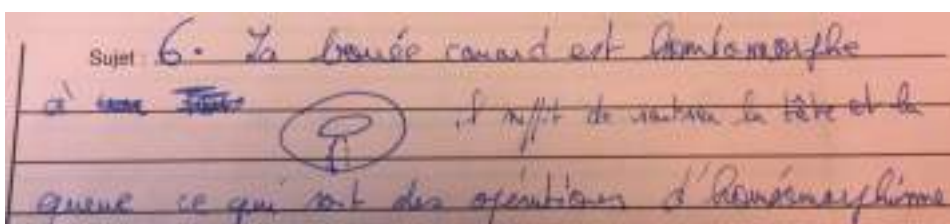 Sujet : 6. La bouée canard est homéomorphe
à il suffit de rentrer la tête et la
queue ce qui sont des opérations d'homéomorphisme